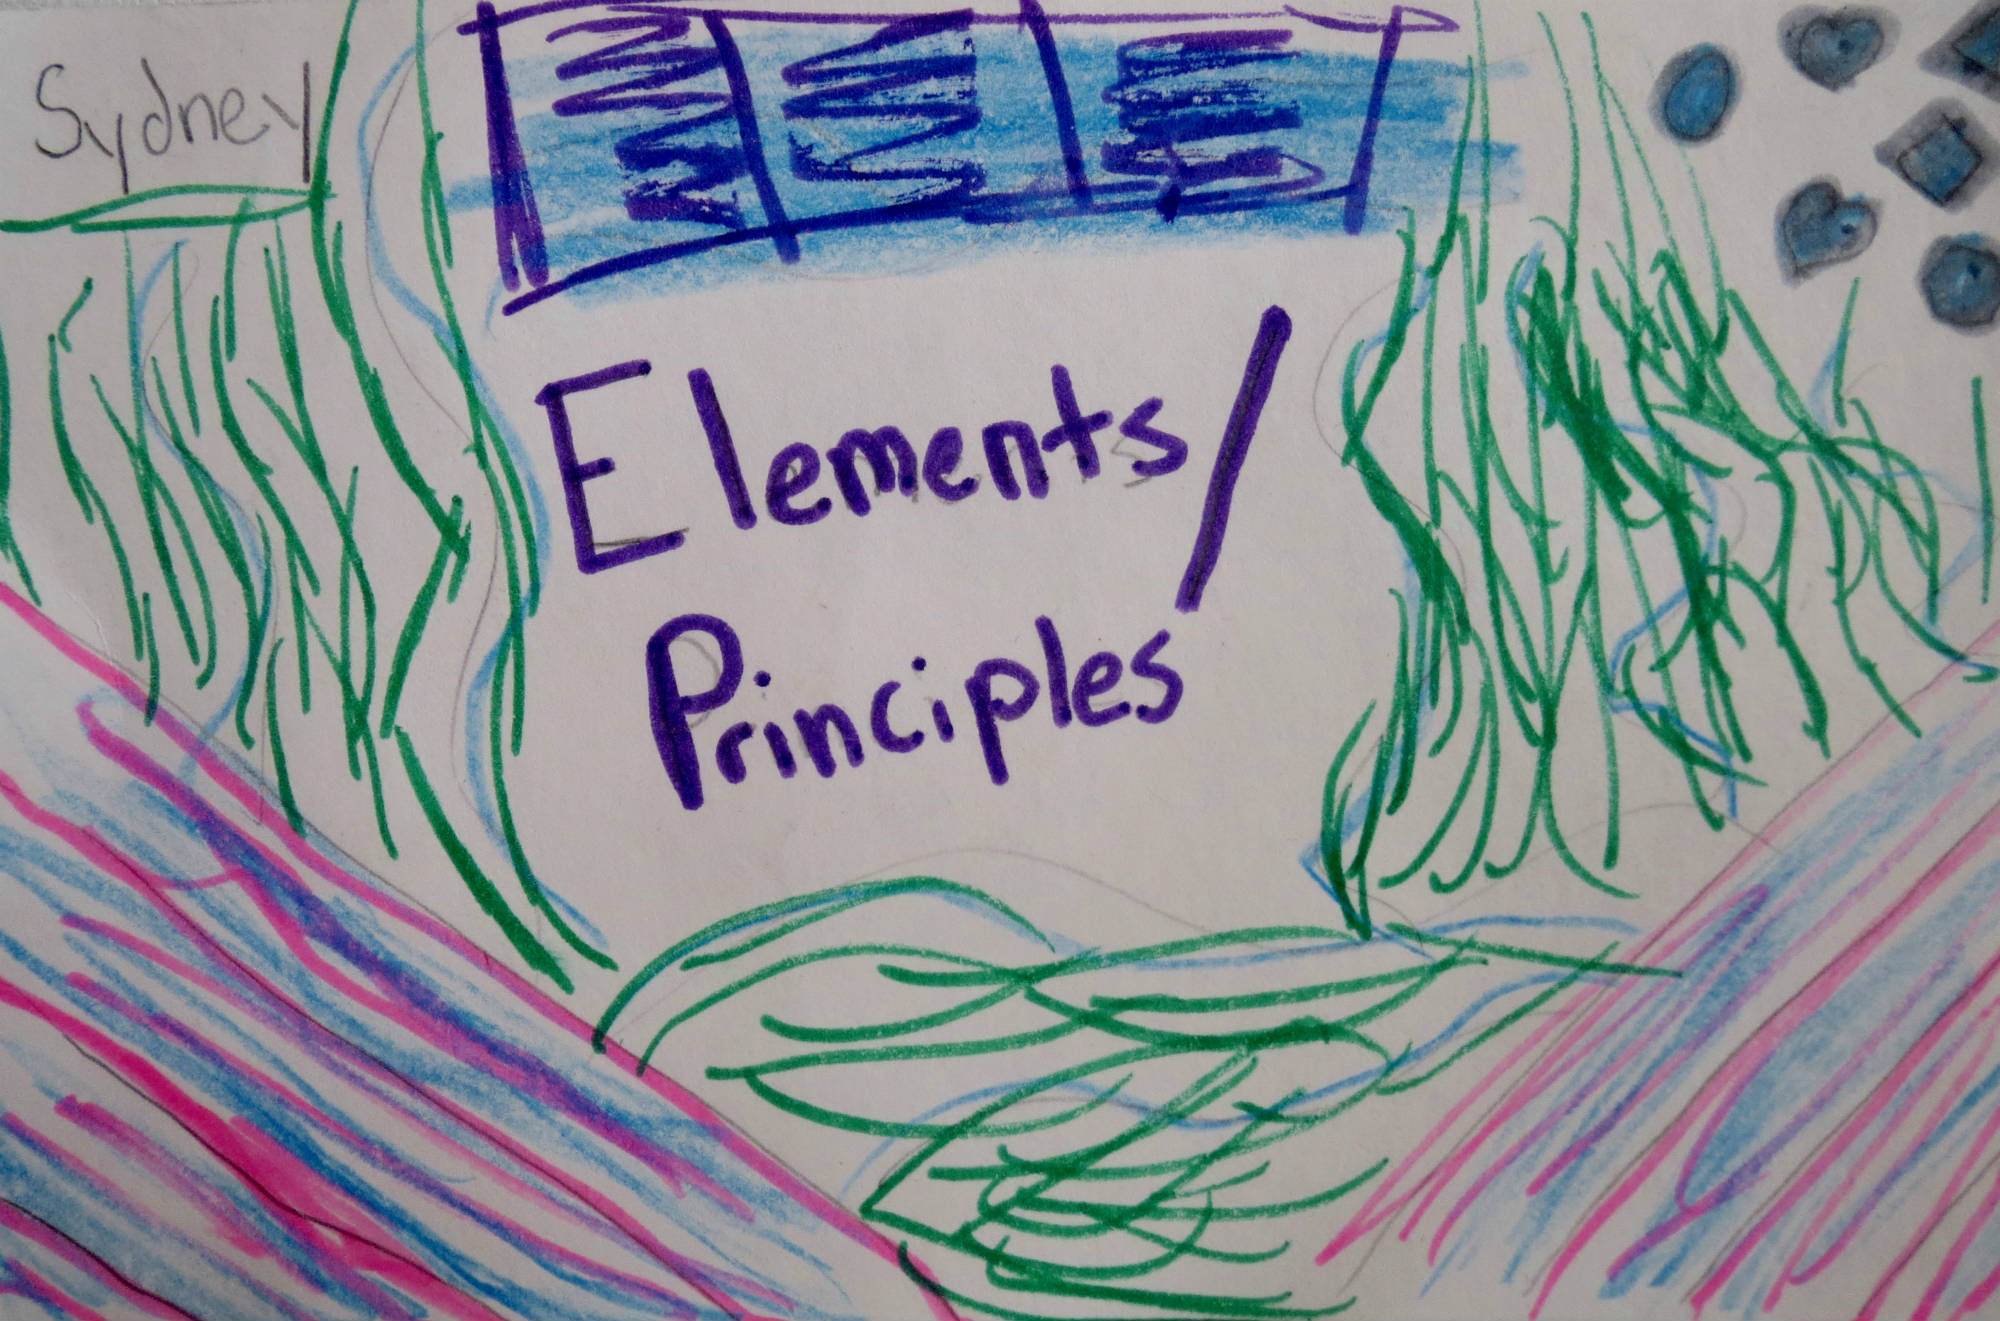 Sydney
Elements/
Principles